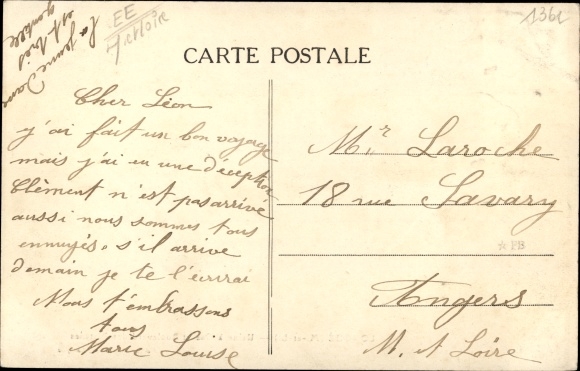 La jeune Dame
est très
gentille
EE
1361
CARTE POSTALE
Cher Léon
j'ai fait un bon voyage
mais j'ai eu une déception
Clèment n'est pas arrivé
aussi nous sommes tous
ennuyés, s'il arrive
demain je te l'écrirai
Nous t'embrassons
tous
Marie Louise
Mr Laroche
18 rue Savary
PB
Angers
M. et Loire